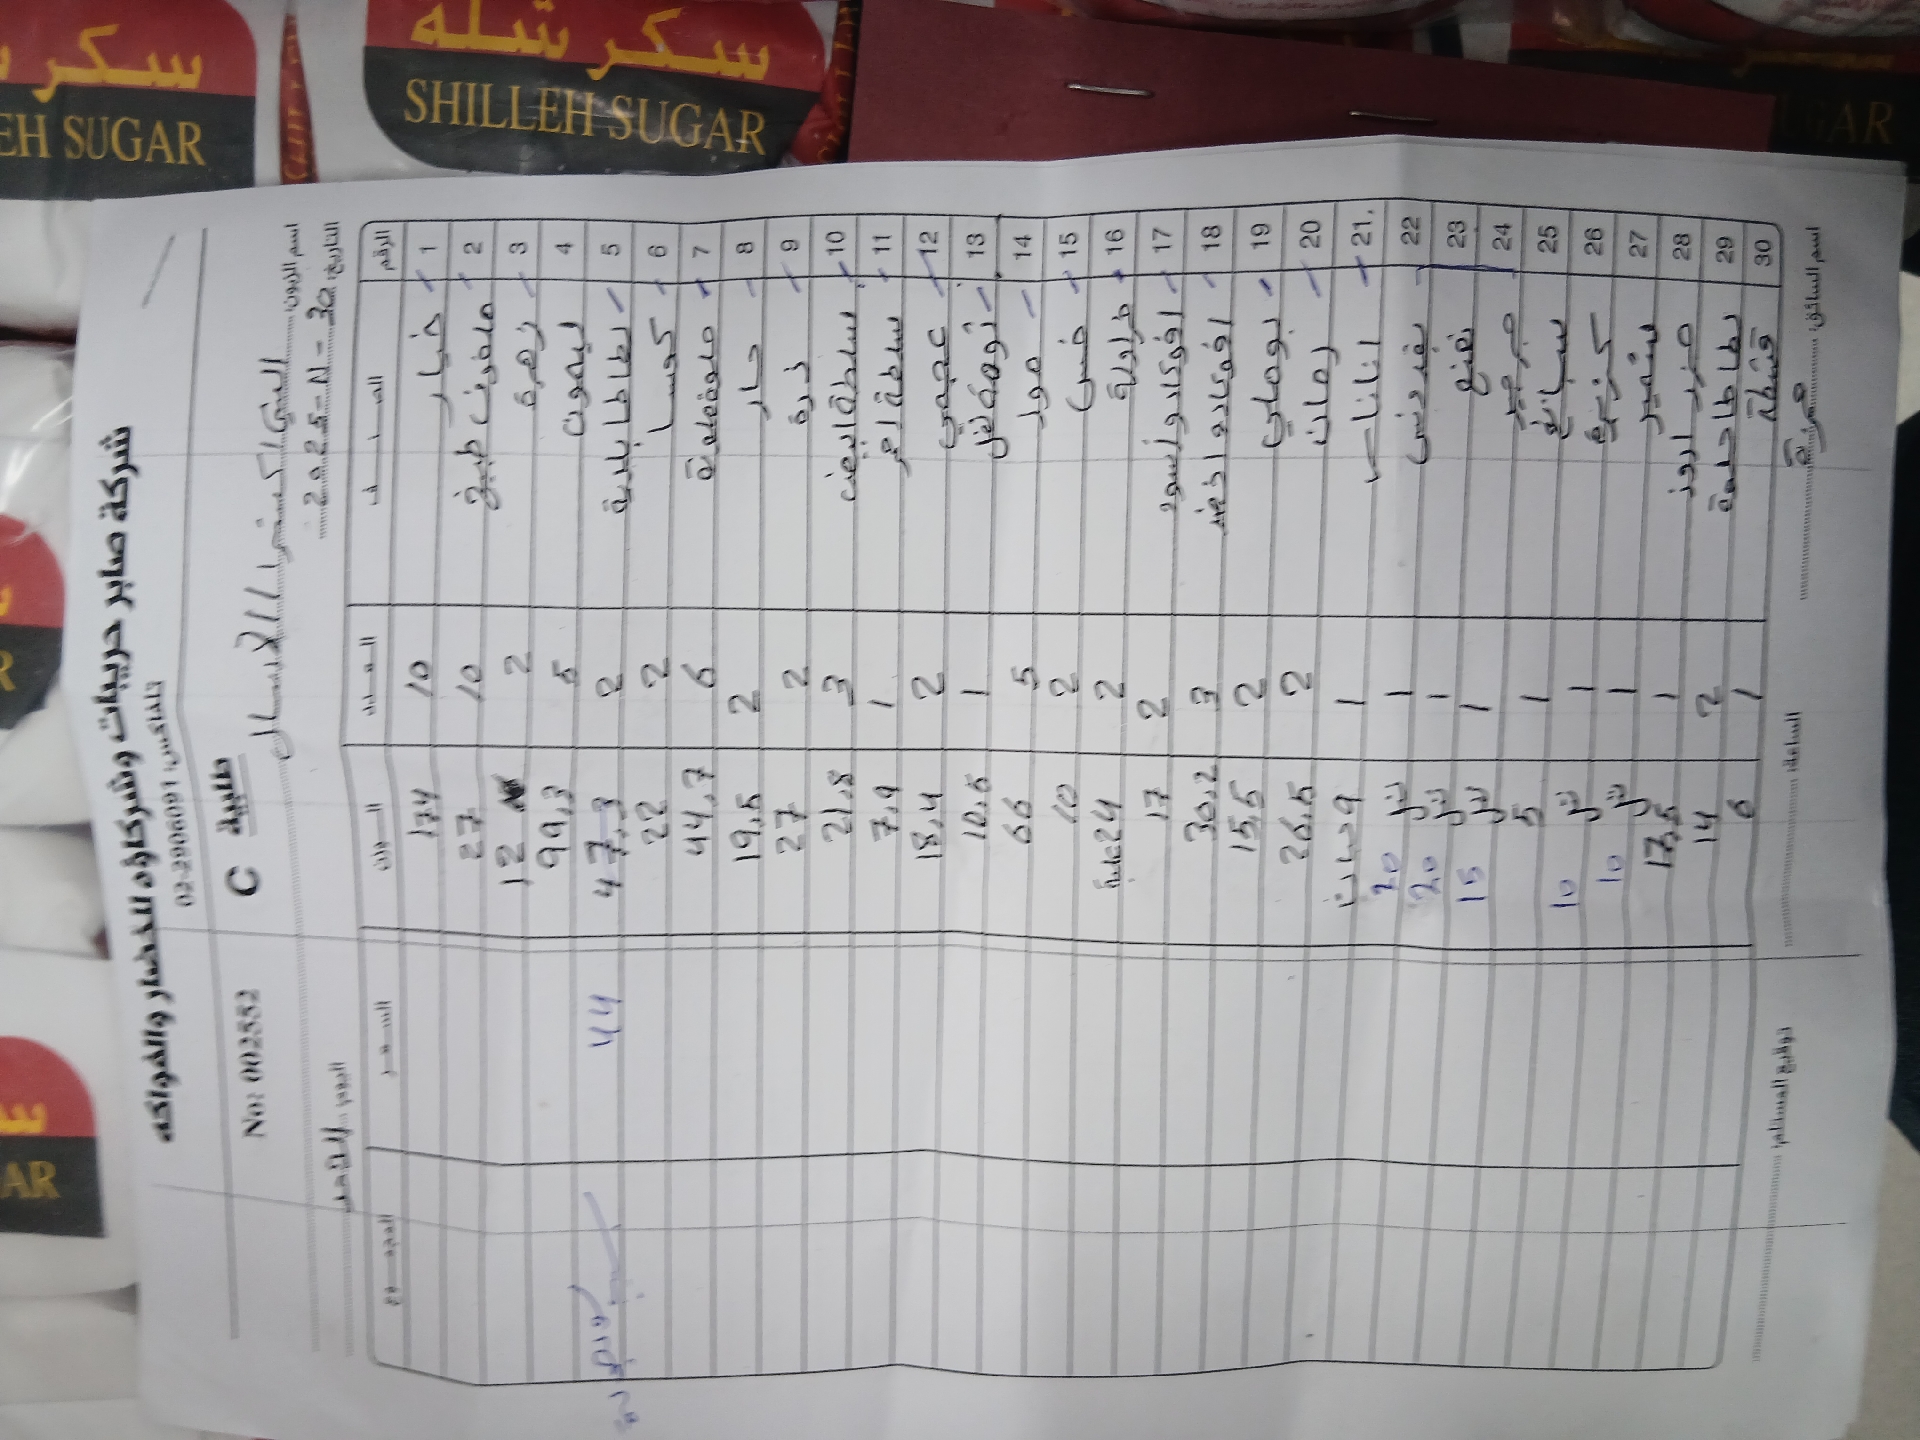 سكر شله
SHILLEH SUGAR
EH SUGAR
شركة صابر حريبات وشركاؤه للخضار والفواكه
تلفاكس: 02-2906091
No: 002552 C طلبية
اسم الزبون:
التاريخ: 30 - 11 - 2025 اليوم:
الرقم الصنف العدد الوزن السعر المجموع
1 خيار 10 174
2 ملفوف طبيخ 10 27
3 زهرة 2 12
4 ليمون 5 99,3
5 بطاطا بلدية 2 47,3 44
6 كوسا 2 22
7 ملوفلفلة 6 44,7
8 حار 2 19,5
9 ذرة 2 27
10 سلطة ابيض 3 21,8
11 سلطة احمر 1 7,9
12 عجمي 2 18,4
13 ثومة فل 1 10,6
14 موز 5 66
15 خس 2 10
16 فراولة 2 24 علبة
17 افوكادو اسود 2 17
18 افوكادو اخضر 3 30,2
19 بوملي 2 15,5
20 رمان 2 26,5
21 اناناس 1 9 حبات
22 بقدونس 1 20
23 نعنع 1 20
24 جرجير 1 15
25 سبانخ 1 5
26 كزبرة 1 10
27 1 10
28 1 17,5
29 بطاطا حلوة 2 14
30 قشطة 1 6
اسم السائق: الساعة: توقيع المستلم: